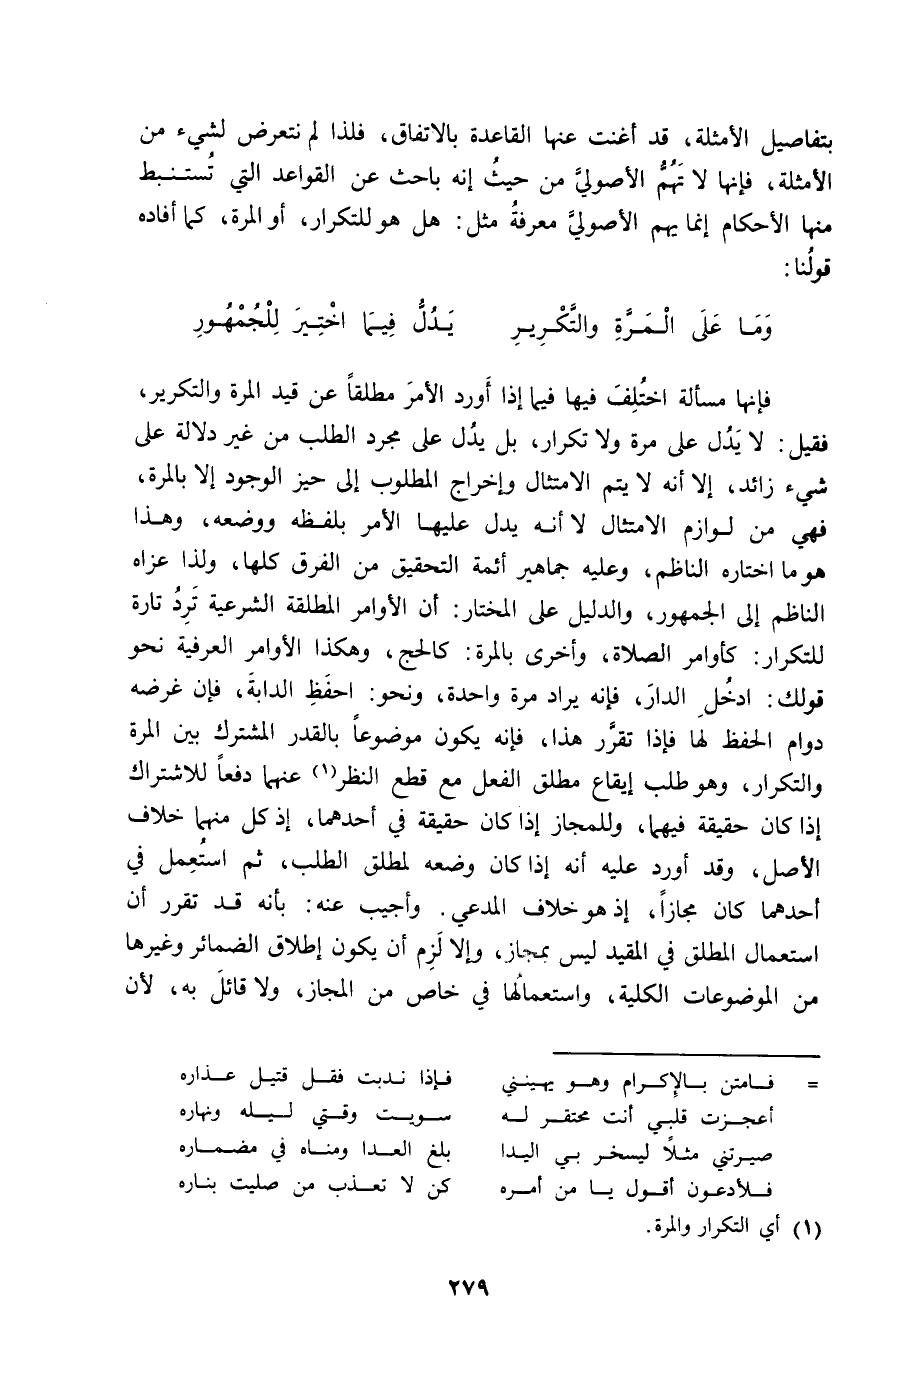 بتفاصيل الأمثلة، قد أغنت عنها القاعدة بالاتفاق، فلذا لم نتعرض لشيء من
الأمثلة، فإنها لا تَهُمُّ الأصوليَّ من حيثُ إنه باحث عن القواعد التي تُستنبط
منها الأحكام إنما يهم الأصوليَّ معرفةُ مثل: هل هو للتكرار، أو المرة، كما أفاده
قولُنا:
وَمَا عَلَى الْمَرَّةِ والتَّكْرِيرِ يَدُلُّ فِيمَا اخْتِيرَ لِلْجُمْهُورِ
فإنها مسألة اختُلِفَ فيها فيما إذا أَورد الأمرَ مطلقاً عن قيد المرة والتكرير،
فقيل: لا يَدُل على مرة ولا تكرار، بل يدُل على مجرد الطلب من غير دلالة على
شيء زائد، إلا أنه لا يتم الامتثال وإخراج المطلوب إلى حيز الوجود إلا بالمرة،
فهي من لوازم الامتثال لا أنه يدل عليها الأمر بلفظه ووضعه، وهذا
هو ما اختاره الناظم، وعليه جماهير أئمة التحقيق من الفرق كلها، ولذا عزاه
الناظم إلى الجمهور، والدليل على المختار: أن الأوامر المطلقة الشرعية تَرِدُ تارة
للتكرار: كأوامر الصلاة، وأخرى بالمرة: كالحج، وهكذا الأوامر العرفية نحو
قولك: ادخُلِ الدارَ، فإنه يراد مرة واحدة، ونحو: احفَظِ الدابةَ، فإن غرضه
دوام الحفظ لها فإذا تقرَّر هذا، فإنه يكون موضوعاً بالقدر المشترك بين المرة
والتكرار، وهو طلب إيقاع مطلق الفعل مع قطع النظر(١) عنهما دفعاً للاشتراك
إذا كان حقيقة فيهما، وللمجاز إذا كان حقيقة في أحدهما، إذ كل منهما خلاف
الأصل، وقد أورد عليه أنه إذا كان وضعه لمطلق الطلب، ثم استُعمل في
أحدهما كان مجازاً، إذ هو خلاف المدعي. وأجيب عنه: بأنه قد تقرر أن
استعمال المطلق في المقيد ليس بمجاز، وإلا لَزِم أن يكون إطلاق الضمائر وغيرها
من الموضوعات الكلية، واستعمالُها في خاص من المجاز، ولا قائلَ به، لأن
= فامتن بالإكرام وهو يهينني فإذا ندبت فقل قتيل عذاره
أعجزت قلبي أنت محتقر له سويت وقتي ليله ونهاره
صيرتني مثلاً ليسخر بي اليدا بلغ العدا ومناه في مضماره
فلأدعون أقول يا من أمره كن لا تعذب من صليت بناره
(١) أي التكرار والمرة.
٢٧٩